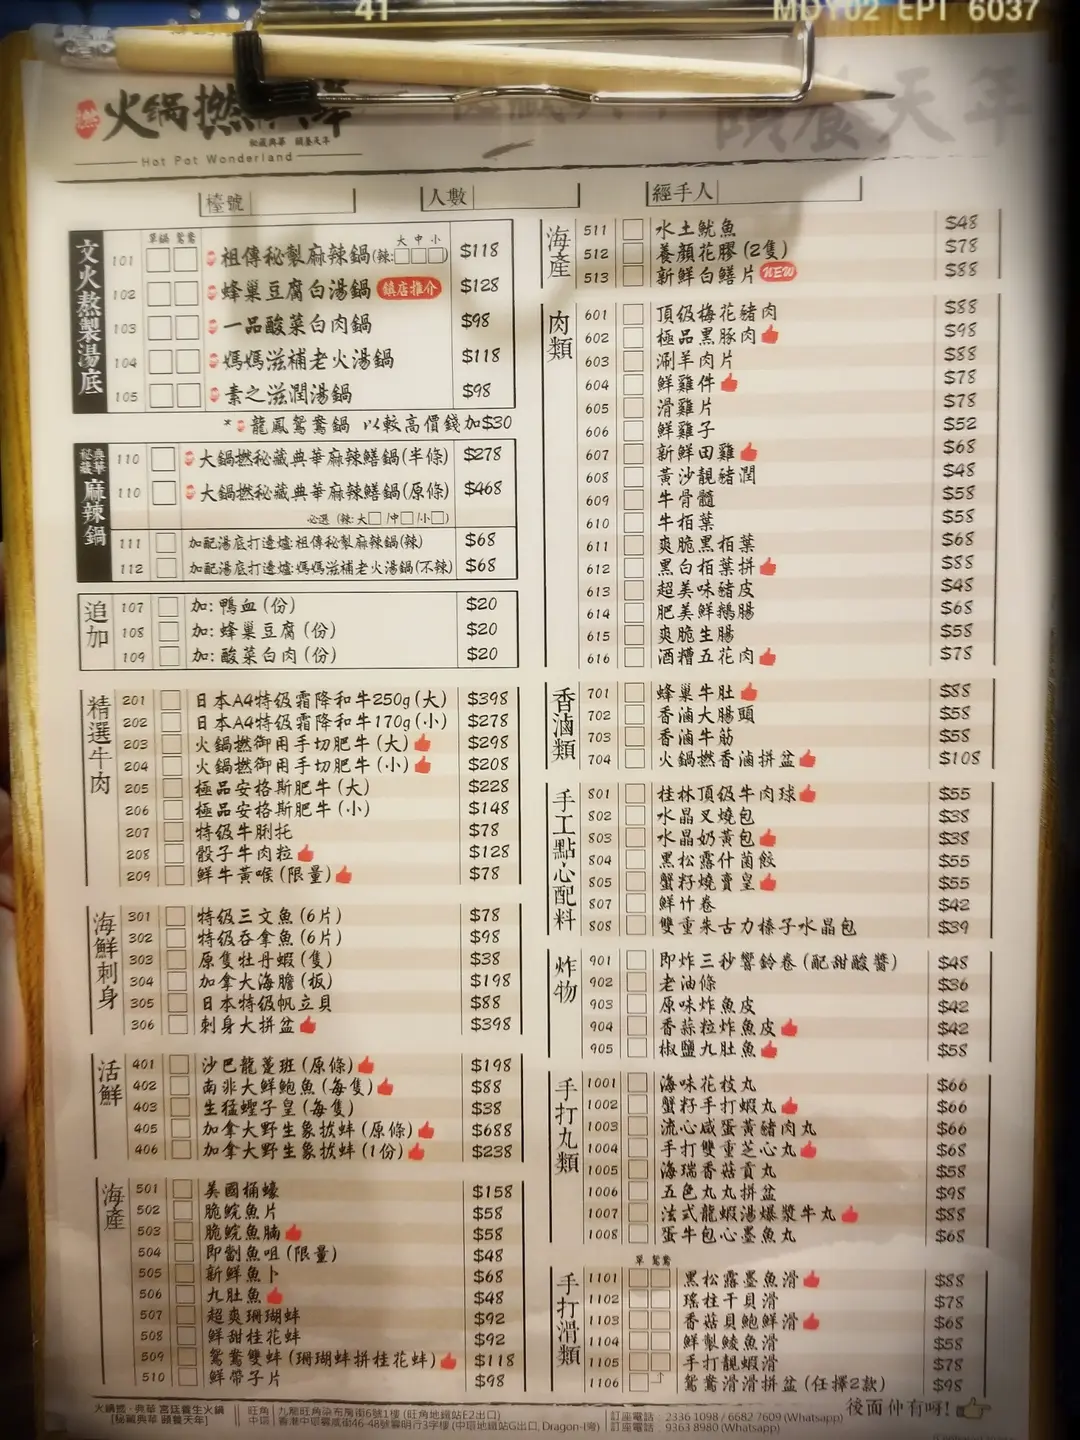 41
MDY02 EPI 6037
火鍋撚典華
秘藏典華 頤養天年
Hot Pot Wonderland
頤養天年
檯號
人數
經手人
文火熬製湯底
單鍋 鴛鴦
大 中 小
101 祖傳秘製麻辣鍋(辣:) $118
102 蜂巢豆腐白湯鍋 鎮店推介 $128
103 一品酸菜白肉鍋 $98
104 媽媽滋補老火湯鍋 $118
105 素之滋潤湯鍋 $98
*龍鳳鴛鴦鍋 以較高價錢加$30
秘藏典華麻辣鍋
110 大鍋撚秘藏典華麻辣鱔鍋(半條) $278
110 大鍋撚秘藏典華麻辣鱔鍋(原條) $468
必選 (辣:大 /中 /小 )
111 加配湯底打邊爐:祖傳秘製麻辣鍋(辣) $68
112 加配湯底打邊爐:媽媽滋補老火湯鍋(不辣) $68
追加
107 加: 鴨血 (份) $20
108 加: 蜂巢豆腐 (份) $20
109 加: 酸菜白肉 (份) $20
精選牛肉
201 日本A4特级霜降和牛250g(大) $398
202 日本A4特级霜降和牛170g(小) $278
203 火鍋撚御用手切肥牛 (大) $298
204 火鍋撚御用手切肥牛 (小) $208
205 極品安格斯肥牛 (大) $228
206 極品安格斯肥牛 (小) $148
207 特级牛脷托 $78
208 骰子牛肉粒 $128
209 鮮牛黃喉 (限量) $78
海鮮刺身
301 特级三文魚 (6片) $78
302 特级吞拿魚 (6片) $98
303 原隻牡丹蝦 (隻) $38
304 加拿大海膽 (板) $198
305 日本特级帆立貝 $88
306 刺身大拼盆 $398
活鮮
401 沙巴龍躉班 (原條) $198
402 南非大鮮鮑魚 (每隻) $88
403 生猛蟶子皇 (每隻) $38
405 加拿大野生象拔蚌 (原條) $688
406 加拿大野生象拔蚌 (1份) $238
海產
501 美國桶蠔 $158
502 脆鯇魚片 $58
503 脆鯇魚腩 $58
504 即劏魚咀 (限量) $48
505 新鮮魚卜 $68
506 九肚魚 $48
507 超爽珊瑚蚌 $92
508 鮮甜桂花蚌 $92
509 鴛鴦雙蚌 (珊瑚蚌拼桂花蚌) $118
510 鮮帶子片 $98
海產
511 水土魷魚 $48
512 養顏花膠 (2隻) $78
513 新鮮白鱔片 NEW $88
肉類
601 頂级梅花豬肉 $88
602 極品黑豚肉 $98
603 涮羊肉片 $88
604 鮮雞件 $78
605 滑雞片 $78
606 鮮雞子 $52
607 新鮮田雞 $68
608 黃沙靚豬潤 $48
609 牛骨髓 $58
610 牛栢葉 $58
611 爽脆黑栢葉 $68
612 黑白栢葉拼 $88
613 超美味豬皮 $48
614 肥美鮮鵝腸 $68
615 爽脆生腸 $58
616 酒糟五花肉 $78
香滷類
701 蜂巢牛肚 $88
702 香滷大腸頭 $58
703 香滷牛筋 $58
704 火鍋撚香滷拼盆 $108
手工點心配料
801 桂林頂级牛肉球 $55
802 水晶叉燒包 $38
803 水晶奶黃包 $38
804 黑松露什菌餃 $55
805 蟹籽燒賣皇 $55
807 鮮竹卷 $42
808 雙重朱古力榛子水晶包 $39
炸物
901 即炸三秒響鈴卷 (配甜酸醬) $48
902 老油條 $36
903 原味炸魚皮 $42
904 香蒜粒炸魚皮 $42
905 椒鹽九肚魚 $58
手打丸類
1001 海味花枝丸 $66
1002 蟹籽手打蝦丸 $66
1003 流心咸蛋黃豬肉丸 $66
1004 手打雙重芝心丸 $68
1005 海瑞香菇貢丸 $58
1006 五色丸丸拼盆 $98
1007 法式龍蝦湯爆漿牛丸 $88
1008 蛋牛包心墨魚丸 $68
手打滑類
單 鴛鴦
1101 黑松露墨魚滑 $88
1102 瑤柱干貝滑 $78
1103 香菇貝鮑鮮滑 $68
1104 鮮製鯪魚滑 $58
1105 手打靚蝦滑 $78
1106 鴛鴦滑滑拼盆 (任擇2款) $98
後面仲有啊!
火鍋撚·典華 宮廷養生火鍋
[秘藏典華 頤養天年]
旺角 九龍旺角染布房街6號1樓 (旺角地鐵站E2出口)
中環 香港中環威靈頓街46-48號豐明行3字樓 (中環地鐵站G出口, Dragon-i旁)
訂座電話 : 2336 1098 / 6682 7609 (Whatsapp)
訂座電話 : 9363 8980 (Whatsapp)